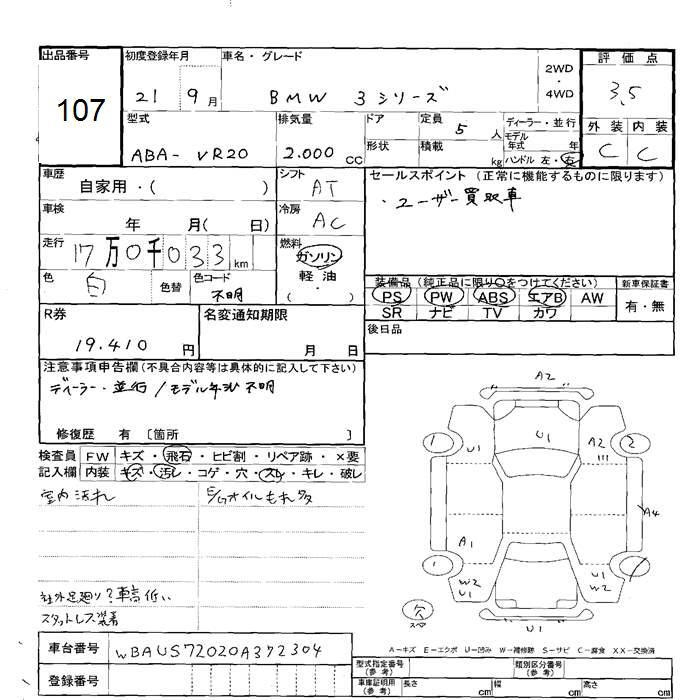 出品番号
107
初度登録年月
21 9月
車名・グレード
BMW 3シリーズ
2WD
・
4WD
評価点
3.5
外装 内装
C C
型式
ABA-VR20
排気量
2.000 CC
ドア
形状
定員
5 人
積載
kg
ディーラー・並行
モデル
年式 年
ハンドル 左・右
車歴
自家用・( )
シフト
AT
セールスポイント (正常に機能するものに限ります)
・ユーザー買取車
車検
年 月( 日)
冷房
AC
走行
17万0千033 km
燃料
ガソリン
軽油
・
( )
色
白
色替
色コード
不明
装備品 (純正品に限り○をつけてください)
PS PW ABS エアB AW
SR ナビ TV カワ
新車保証書
有・無
R券
19.410 円
名変通知期限
月 日
後日品
注意事項申告欄(不具合内容等は具体的に記入して下さい)
ディーラー・並行/モデル年式不明
修復歴 有 〔箇所 〕
検査員
記入欄
FW キズ・飛石・ヒビ割・リペア跡・×要
内装 キズ・汚レ・コゲ・穴・スレ・キレ・破レ
室内汚れ
E/Gオイルもれ多
社外足廻り?車高低い
スタットレス装着
A2
1
U1
U1
A2
2
A4
A1
1
W2
U1
U1
W2
欠
スペア
U1
A-キズ E-エクボ U-凹み W-補修跡 S-サビ C-腐食 XX-交換済
車台番号
WBAUS72020A372304
登録番号
型式指定番号
(参考)
類別区分番号
(参考)
車庫証明用
(参考)
長さ cm
幅 cm
高さ cm